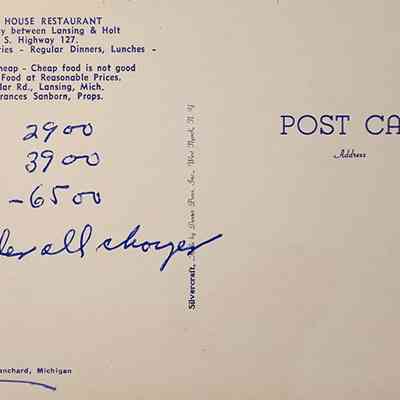 HOUSE RESTAURANT
y between Lansing & Holt
S. Highway 127.
ries - Regular Dinners, Lunches -
heap - Cheap food is not good
Food at Reasonable Prices.
lar Rd., Lansing, Mich.
rances Sanborn, Props.
2900
3900
-6500
all
anchard, Michigan
Silvercraft, Made by Dexter Press, Inc., West Nyack, N. Y.
POST CA
Address